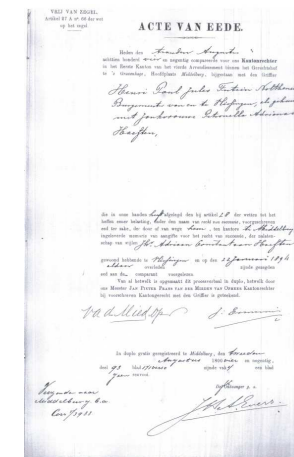 VRIJ VAN ZEGEL,
Artikel 27 A nº 60 der wet
op het zegel
ACTE VAN EEDE.
Heden den tweeden Augustus
achttien honderd vier en negentig compareerde voor ons Kantonrechter
in het Eerste Kanton van het vierde Arrondissement binnen het Gerechtshof
te 's Gravenhage, Hoofdplaats Middelburg, bijgestaan met den Griffier
Henri Paul Jules
Burgemeester van en te Vlissingen, als gehuwd
met jonkvrouwe Petronella Adriana
Haeften,
die in onze handen heeft afgelegd den bij artikel 28 der wetten tot het
heffen eener belasting, onder den naam van recht van successie, voorgeschreven
eed ter zake, der door of van wege hem, ten kantore te Middelburg
ingeleverde memorie van aangifte voor het recht van successie, der nalaten-
schap van wijlen Jhr. Adriaan van Haeften
gewoond hebbende te Vlissingen en op den 22 Januari 1894
aldaar overleden zijnde gemelden
eed aan de comparant voorgelezen.
Van al hetwelk is opgemaakt dit procesverbaal in duplo, hetwelk door
ons Meester Jan Pieter Frans van der Mieden van Opmeer Kantonrechter
bij voorschreven Kantongerecht met den Griffier is geteekend.
In duplo gratis geregistreerd te Middelburg, den tweeden
Augustus 1800 vier en negentig,
deel 93 blad vak een blad
geen renvooi
De Ontvanger
Middelburg